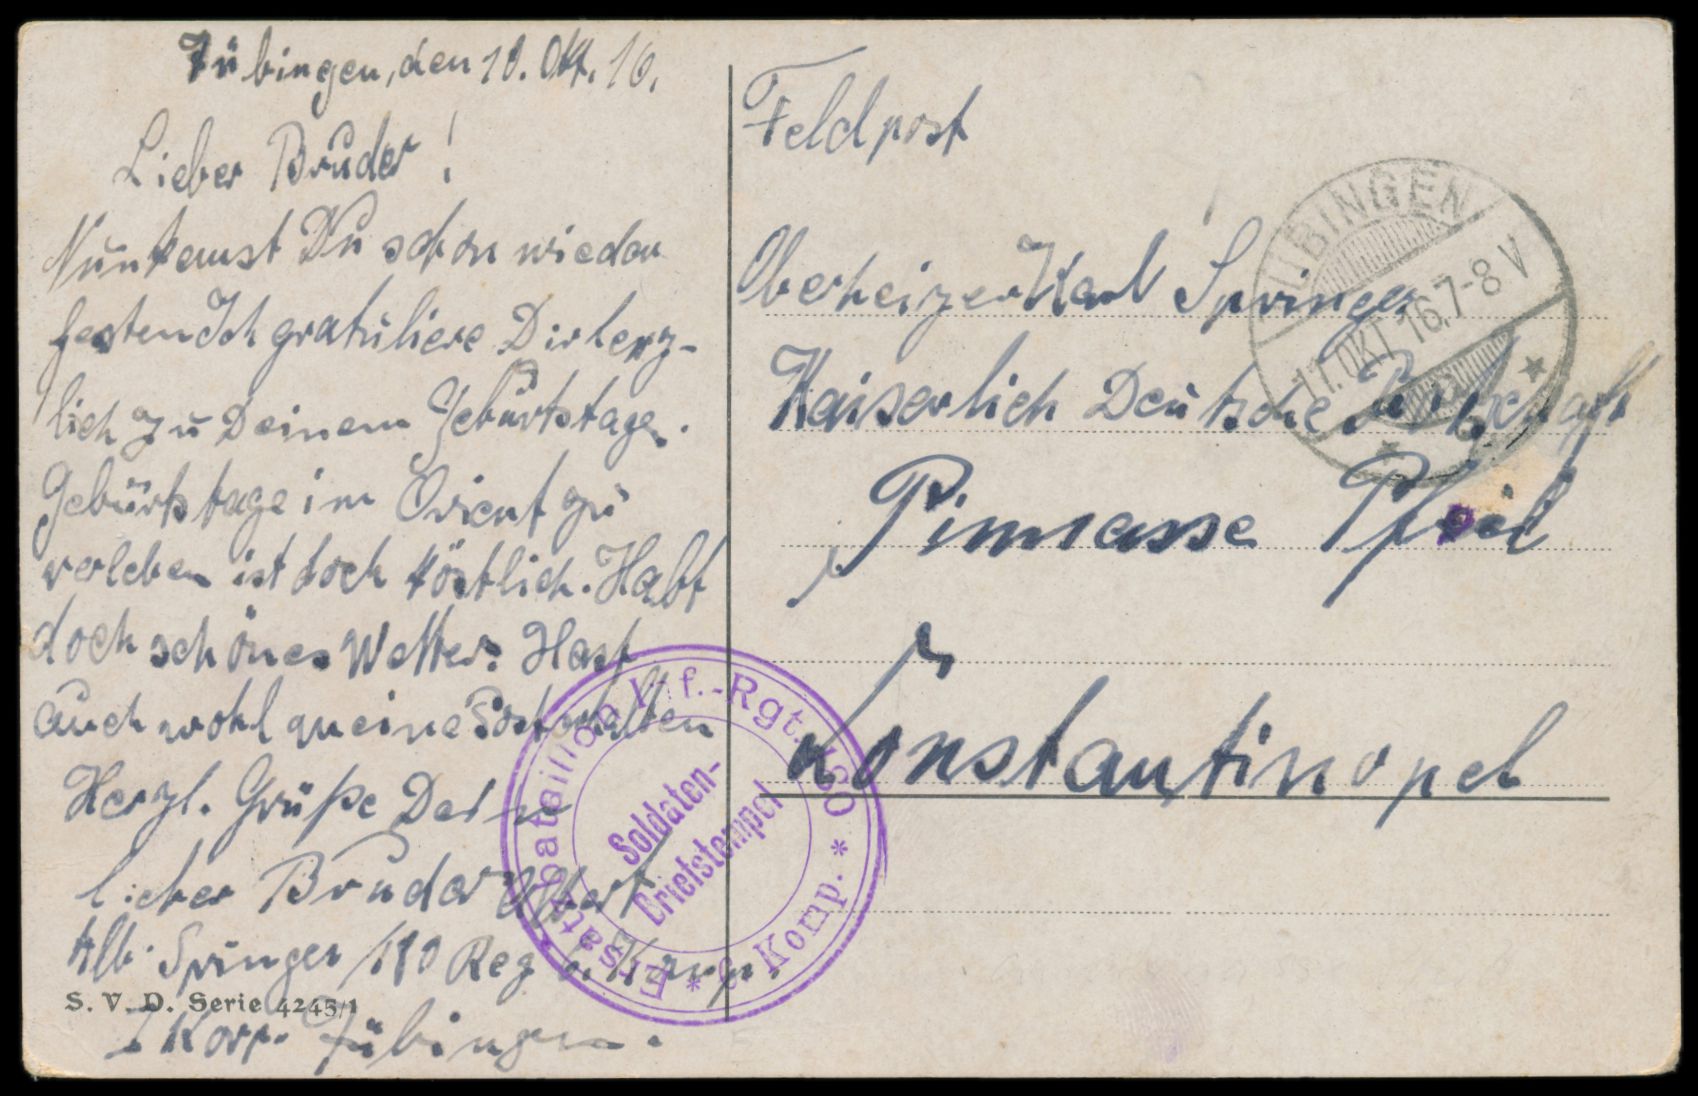 Tübingen, den 10. Okt. 16.
Lieber Bruder!
Nun kamst Du schon wieder
festen Ich gratuliere Dir herz-
lich zu Deinem Geburtstage.
Geburtstage im Orient zu
verleben ist doch köstlich. Habt
doch schönes Wetter. Hast
auch wohl meine Post erhalten
Herzl. Grüße Dein
lieber Bruder Albert
Alb. Springer 180 Reg 6. Komp.
Korp. Tübingen.
S. V. D. Serie 4245/1
Feldpost
Oberheizer Karl Springer
Kaiserlich Deutsche Botschaft
Pinnasse Pfeil
Konstantinopel
TÜBINGEN
11.OKT 16.7-8 V
Ersatz-bataillon Inf.-Rgt. 180
* 6. Komp. *
Soldaten-
briefstempel